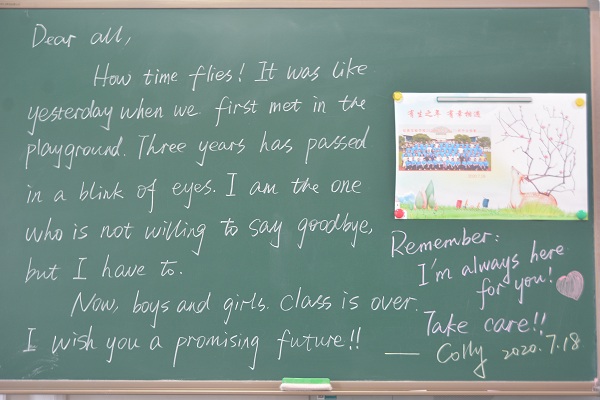 Dear all,
How time flies! It was like
yesterday when we first met in the
playground. Three years has passed
in a blink of eyes. I am the one
who is not willing to say goodbye,
but I have to.
Now, boys and girls. Class is over.
I wish you a promising future!!
有生之年 有幸相遇
Remember:
I'm always here
for you!
Take care!!
—— Colly 2020.7.18